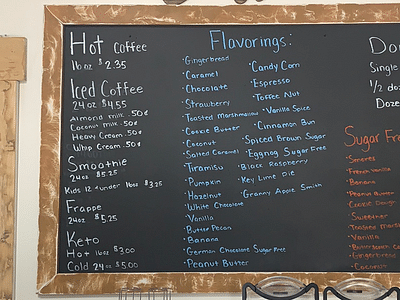 Hot Coffee
16 oz $2.35
Iced Coffee
24 oz $4.55
Almond milk .50¢
Coconut milk .50¢
Heavy Cream .50¢
Whip Cream .50¢
Smoothie
24oz $5.25
Kids 12 & under 16oz $3.25
Frappe
24oz $5.25
Keto
Hot 16oz $3.00
Cold 24oz $5.00
Flavorings:
·Gingerbread
·Caramel
·Chocolate
·Strawberry
·Toasted Marshmallow
·Cookie Butter
·Coconut
·Salted Caramel
·Tiramisu
·Pumpkin
·Hazelnut
·White Chocolate
·Vanilla
·Butter Pecan
·Banana
·German Chocolate Sugar Free
·Peanut Butter
·Candy Corn
·Espresso
·Toffee Nut
·Vanilla Spice
·Cinnamon Bun
·Spiced Brown Sugar
·Eggnog Sugar Free
·Black Raspberry
·Key Lime Pie
·Granny Apple Smith
Do
Single
1/2 doz
Doze
Sugar Free
·S'mores
·French Vanilla
·Banana
·Peanut Butter
·Cookie Dough
·Sweetner
·Toasted Marsh
·Vanilla
·Gingerbread
·Coconut